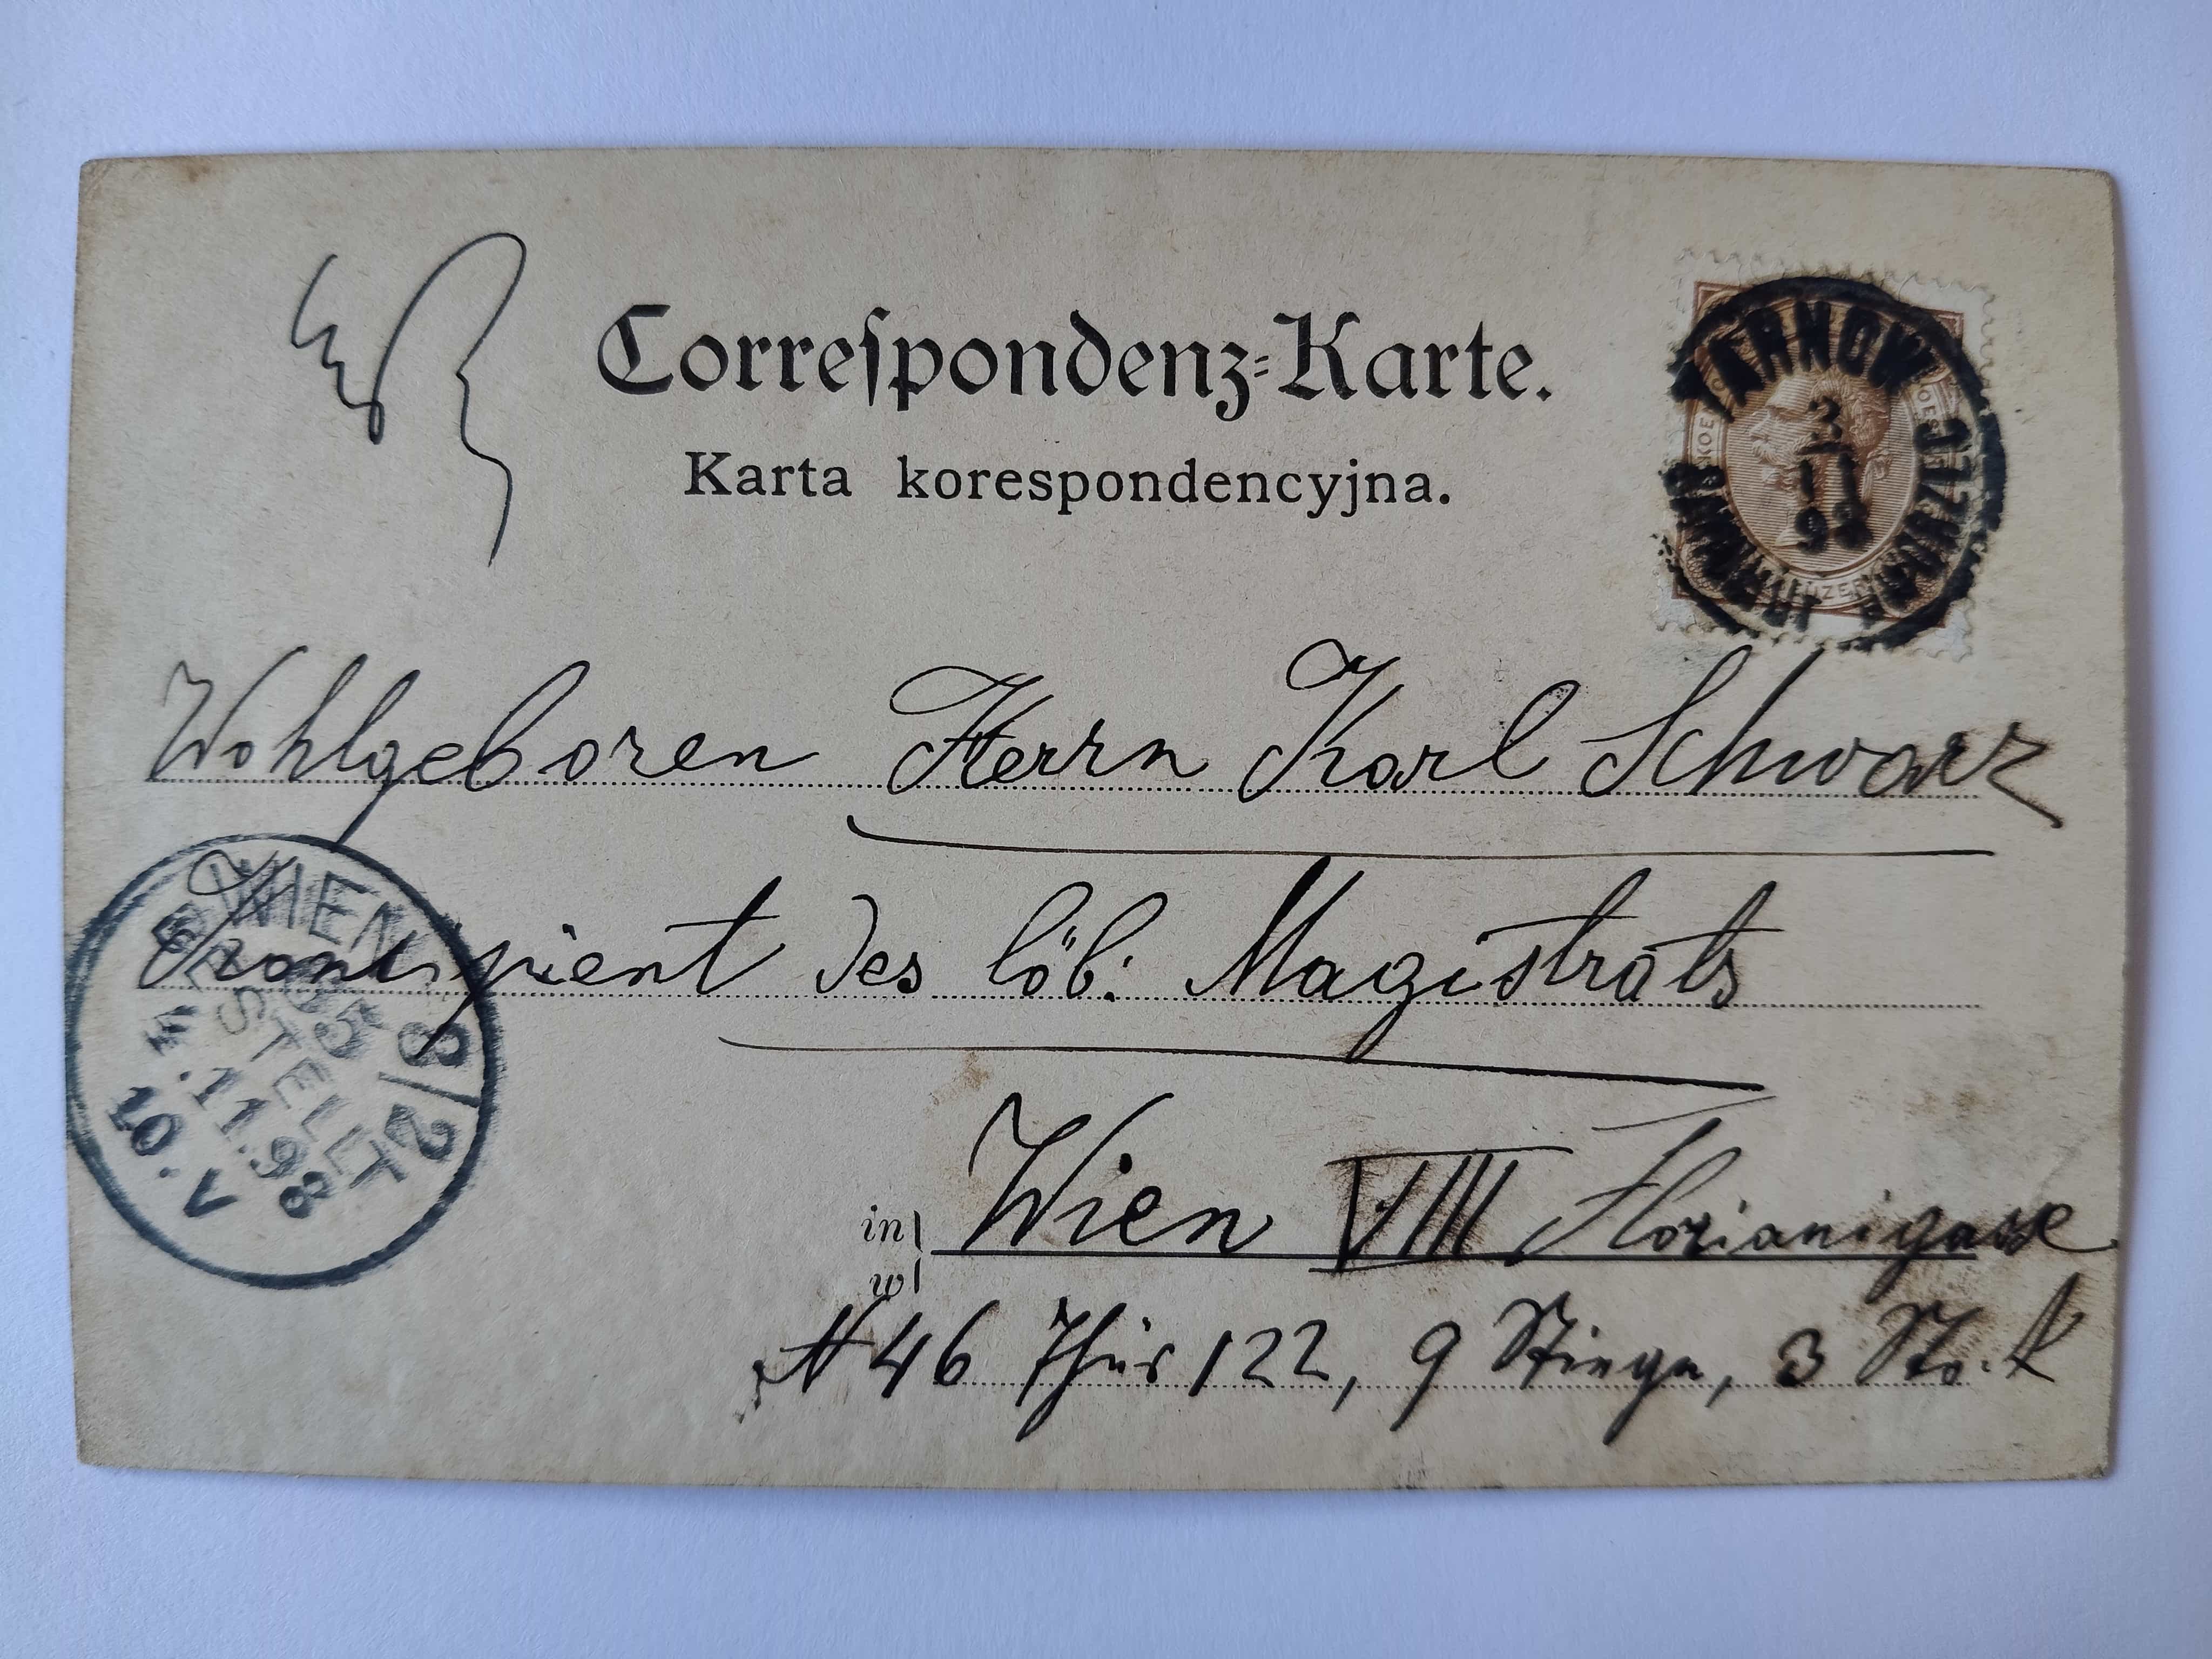 Correspondenz-Karte.
Karta korespondencyjna.
TARNOW
3
11
98
DWORZEC
BAHNHOF
Wohlgeboren Herrn Karl Schwarz
des löb: Magistrats
WIEN 8/2
BESTELLT
4.11.98
V.10
in
w
Wien VIII Florianigasse
N 46 Thür 122, 9 Stiege, 3 Stock